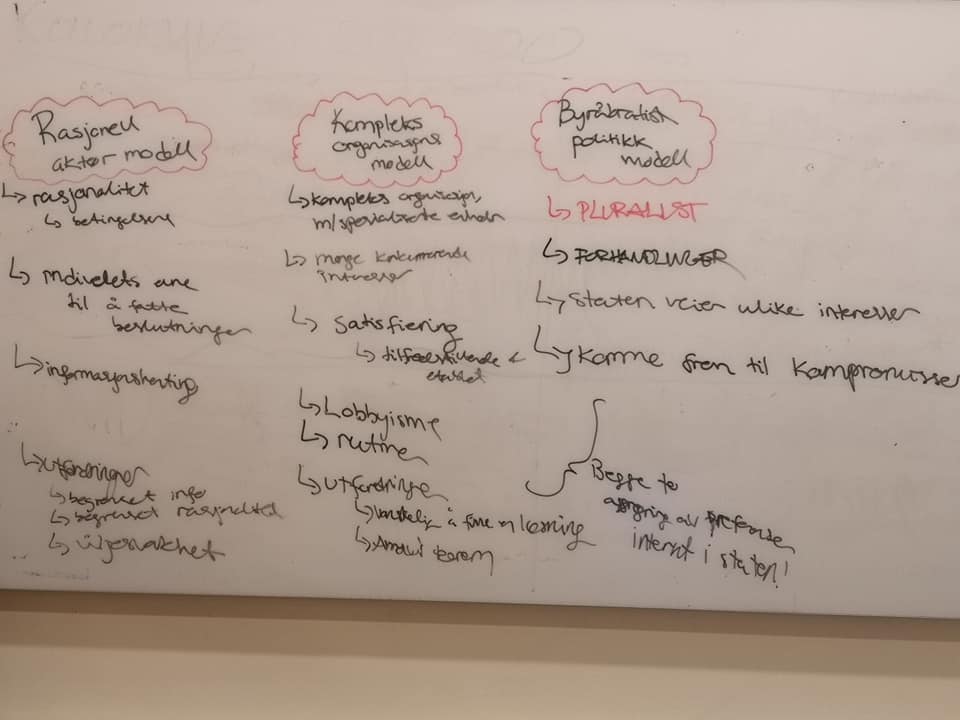 Rasjonell
aktør modell
↳ rasjonalitet
↳ betingelsene
↳ individets evne
til å fatte
beslutninger
↳ informasjonshenting
↳ utfordringer
↳ begrenset info
↳ begrenset rasjonalitet
↳ usikkerhet
Kompleks
organisasjons
modell
↳ kompleks organisasjon,
m/spesialiserte enheter
↳ mange konkurrerende
interesser
↳ Satisfiering
↳ tilfredsstillende
↳ Lobbyisme
↳ rutine
↳ utfordringer
↳ vanskelig å finne en løsning
↳ Arrows teorem
Byråkratisk
politikk
modell
↳ PLURALIST
↳ FORHANDLINGER
↳ Staten veier ulike interesser
↳ Komme frem til kompromisser
Begge to
av
internt i staten!